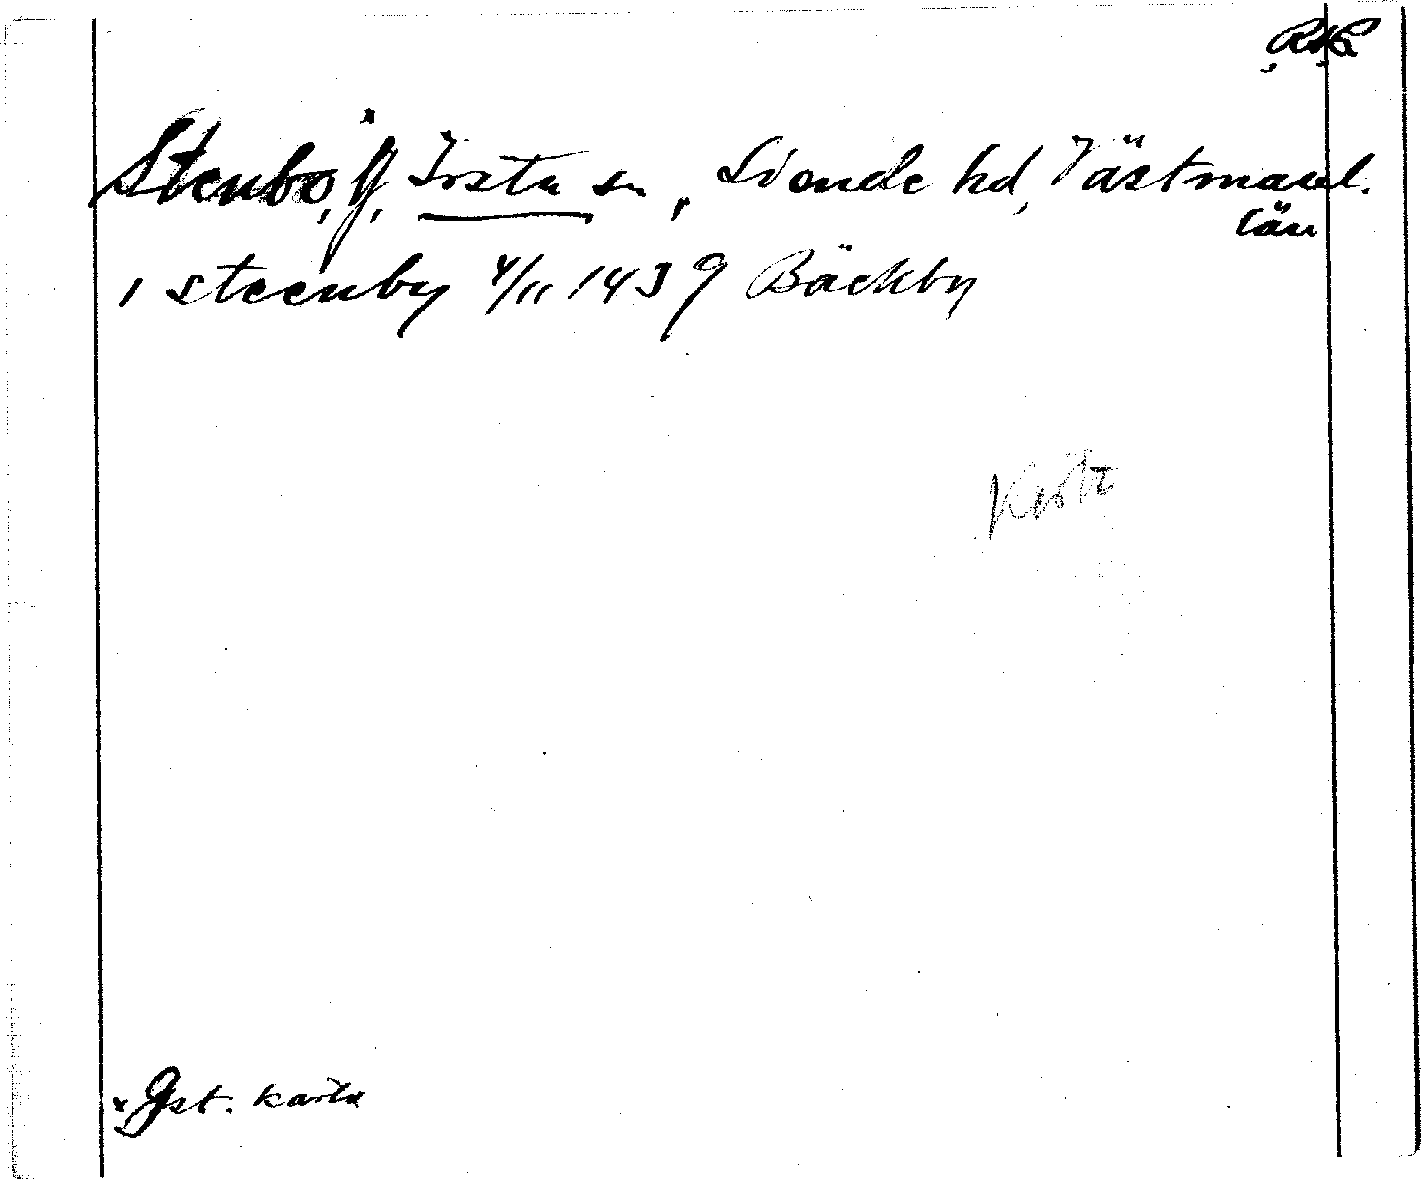 Stenbo, g, Irsta sn, Siende hd, Västmanl.
län
i steenby 4/11 1439 Bäckby
x Gst. karta